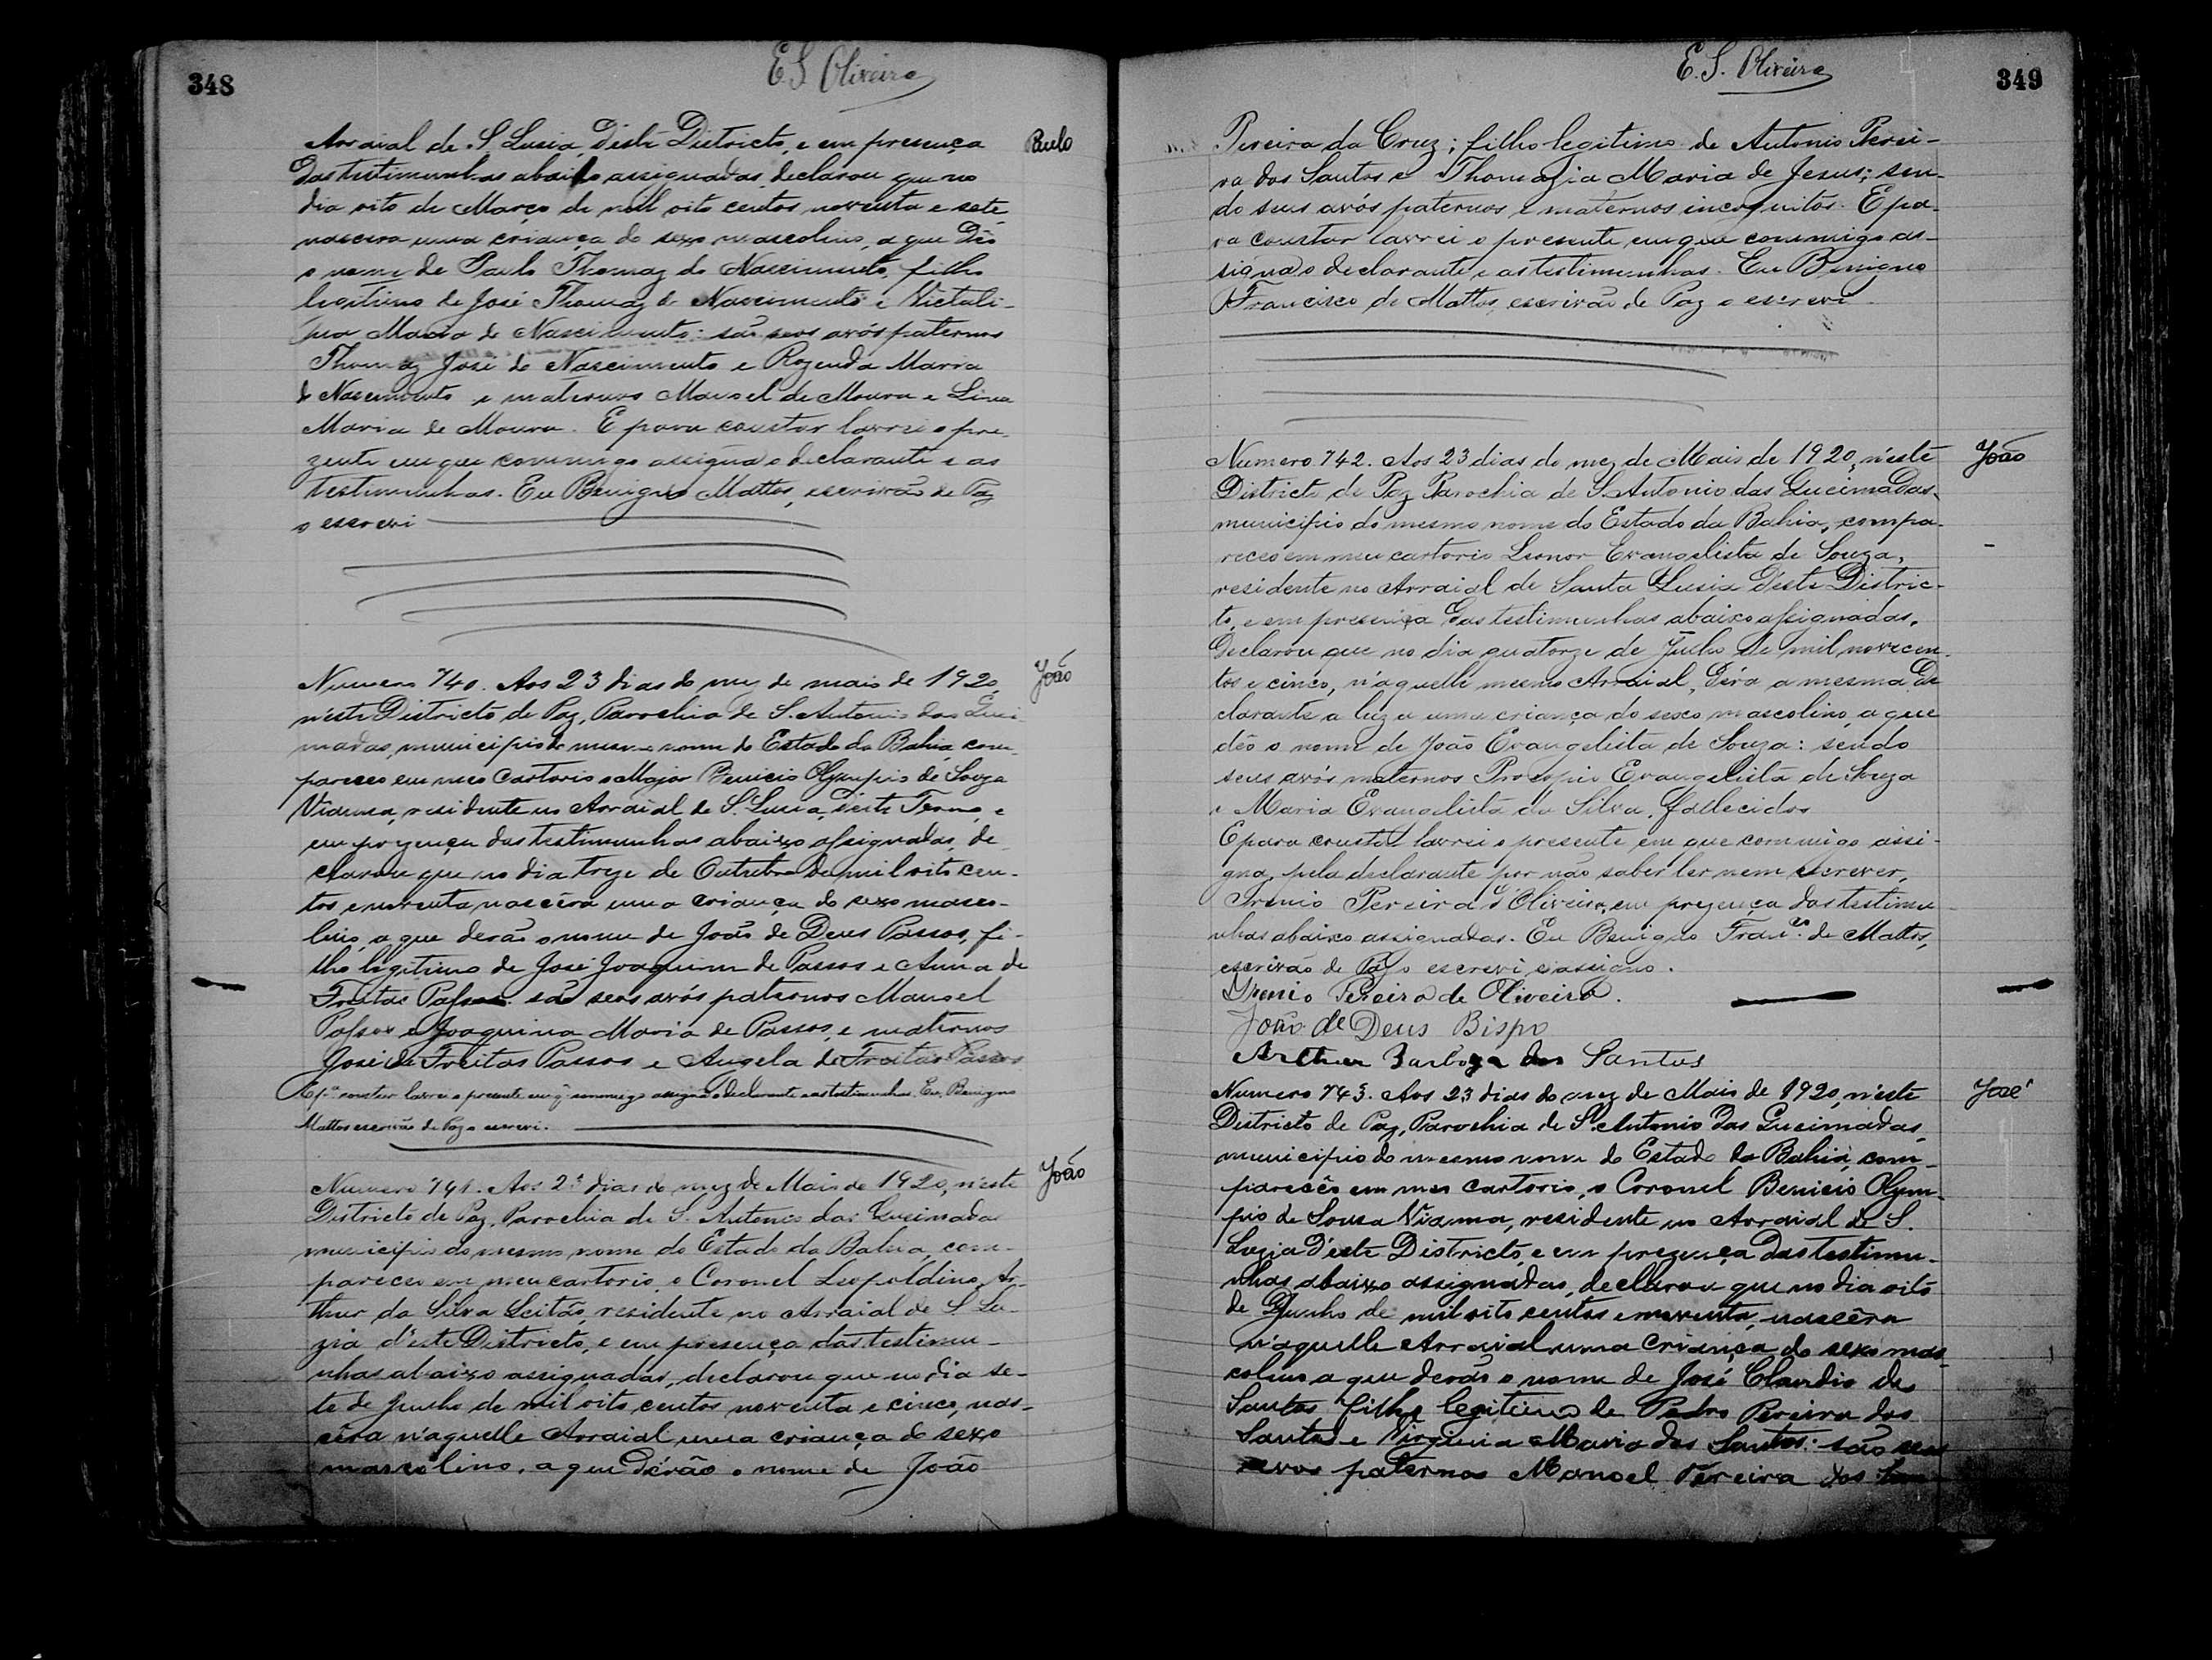 348
E S Oliveira
Paulo
Arraial de S. Lusia, d'este Districto, e em presença
das testimunhas abaixo assignadas, declarou que no
dia oito de Março de mil oito centos noventa e sete
nascera uma criança do sexo mascolino, a que dêo
o nome de Paulo Thomaz do Nascimento, filho
legitimo de José Thomaz do Nascimento e Victali-
na Maria do Nascimento: são seos avós paternos
Thomaz José do Nascimento e Rozenda Maria
do Nascimento e maternos Manoel de Moura e Lina
Maria de Moura. E para constar lavrei o pre-
zente em que commigo assigna o declarante e as
testimunhas. Eu Benigno Mattos, escrivão de Paz
o escrevi
João
Numero 740. Aos 23 dias do mez de maio de 1920,
n'este Districto de Paz, Parochia de S. Antonio das Quei-
madas, municipio do mesmo nome do Estado da Bahia, com-
pareceo em meo Cartorio o Major Benicio Olympio de Souza
Vianna, residente no Arraial de S. Lusia, d'este Termo, e
em prezença das testimunhas abaixo assignadas, de-
clarou que no dia treze de Outubro de mil oito cen-
tos e noventa nascêra uma criança do sexo masco-
lino, a que derão o nome de João de Deus Passos, fi-
lho legitimo de José Joaquim de Passos e Anna de
Freitas Passos: são seos avós paternos Manoel
Passos e Joaquina Maria de Passos, e maternos
José de Freitas Passos e Angela de Freitas Passos
E pª constar lavrei o prezente em q. commigo assigna o declarante e as testimunhas. Eu, Benigno
Mattos escrivão de Paz o escrevi.
João
Numero 741. Aos 23 dias do mez de Maio de 1920, n'este
Districto de Paz, Parochia de S. Antonio das Queimadas
municipio do mesmo nome do Estado da Bahia, com-
pareceo em meu cartorio, o Coronel Leopoldino Ar-
thur da Silva Leitão, residente no Arraial de S. Lu-
zia d'este Districto, e em presença das testimu-
nhas abaixo assignadas, declarou que no dia se-
te de Junho de mil oito centos noventa e cinco, nas-
cêra n'aquelle Arraial uma criança do sexo
mascolino, a que dérão o nome de João
E. S. Oliveira
349
Pereira da Cruz; filho legitimo de Antonio Perei-
ra dos Santos e Thomazia Maria de Jesus; sen-
do seus avós paternos e maternos incognitos. E pa-
ra constar lavrei o presente em que commigo as-
signa o declarante e as testimunhas. Eu Benigno
Francisco de Mattos, escrivão de Paz o escrevi
João
Numero 742. Aos 23 dias do mez de Maio de 1920, n'este
Districto de Paz Parochia de S. Antonio das Queimadas,
municipio do mesmo nome do Estado da Bahia, compa-
receo em meu cartorio Leonor Evangelista de Souza,
residente no Arraial de Santa Lusia d'este Distric-
to, e em presença das testimunhas abaixo assignadas,
declarou que no dia quatorze de Julho de mil novecen-
tos e cinco, n'aquelle mesmo Arraial, déra a mesma de-
clarante a luz a uma criança do sexo mascolino, a que
dêo o nome de João Evangelista de Souza: sendo
seus avós maternos Procopio Evangelista de Souza
e Maria Evangelista da Silva, fallecidos
E para constar lavrei o presente em que commigo assi-
gna, pela declarante por não saber ler nem escrever,
Irenio Pereira d'Oliveira, em prezença das testimu-
nhas abaixo assignadas. Eu Benigno Franco. de Mattos,
escrivão de Paz o escrevi e assigno.
Irenio Pereira de Oliveira.
João de Deus Bispo
Arthur Barboza dos Santos
José
Numero 743. Aos 23 dias do mez de Maio de 1920, n'este
Districto de Paz, Parochia de S. Antonio das Queimadas,
municipio do mesmo nome do Estado da Bahia, com-
pareceo em meu cartorio, o Coronel Benicio Olym-
pio de Sousa Vianna, residente no Arraial de S.
Luzia d'este Districto, e em prezença das testimu-
nhas abaixo assignadas, declarou que no dia oito
de Junho de mil oito centos e noventa, nascêra
n'aquelle Arraial uma criança do sexo mas-
colino a que derão o nome de José Claudio dos
Santos filho legitimo de Pedro Pereira dos
Santos e Virginia Maria dos Santos: são seos
avos paternos Manoel Pereira dos San-